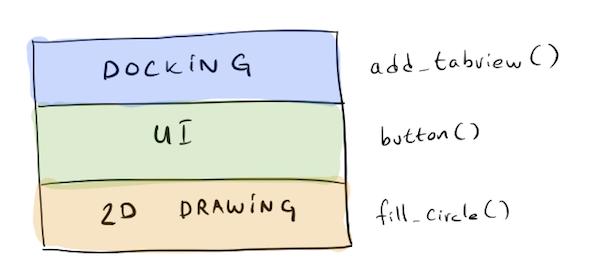 DOCKING add_tabview()
UI button()
2D DRAWING fill_circle()